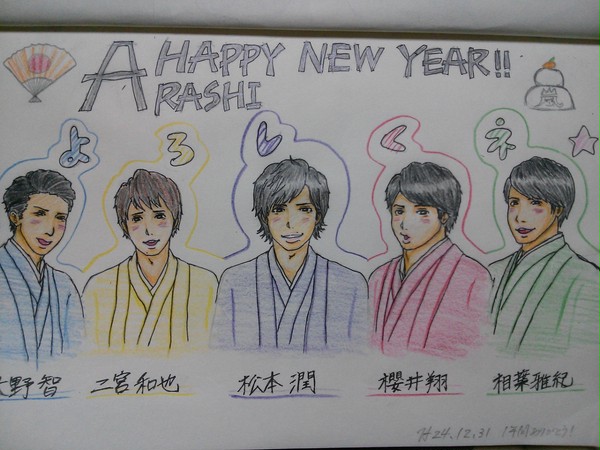 A HAPPY NEW YEAR!!
RASHI
よろしくネ☆
大野智 二宮和也 松本潤 櫻井翔 相葉雅紀
H24.12.31 1年間ありがとう!